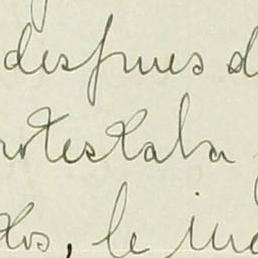 despues d
rotestaba
dos, le ind